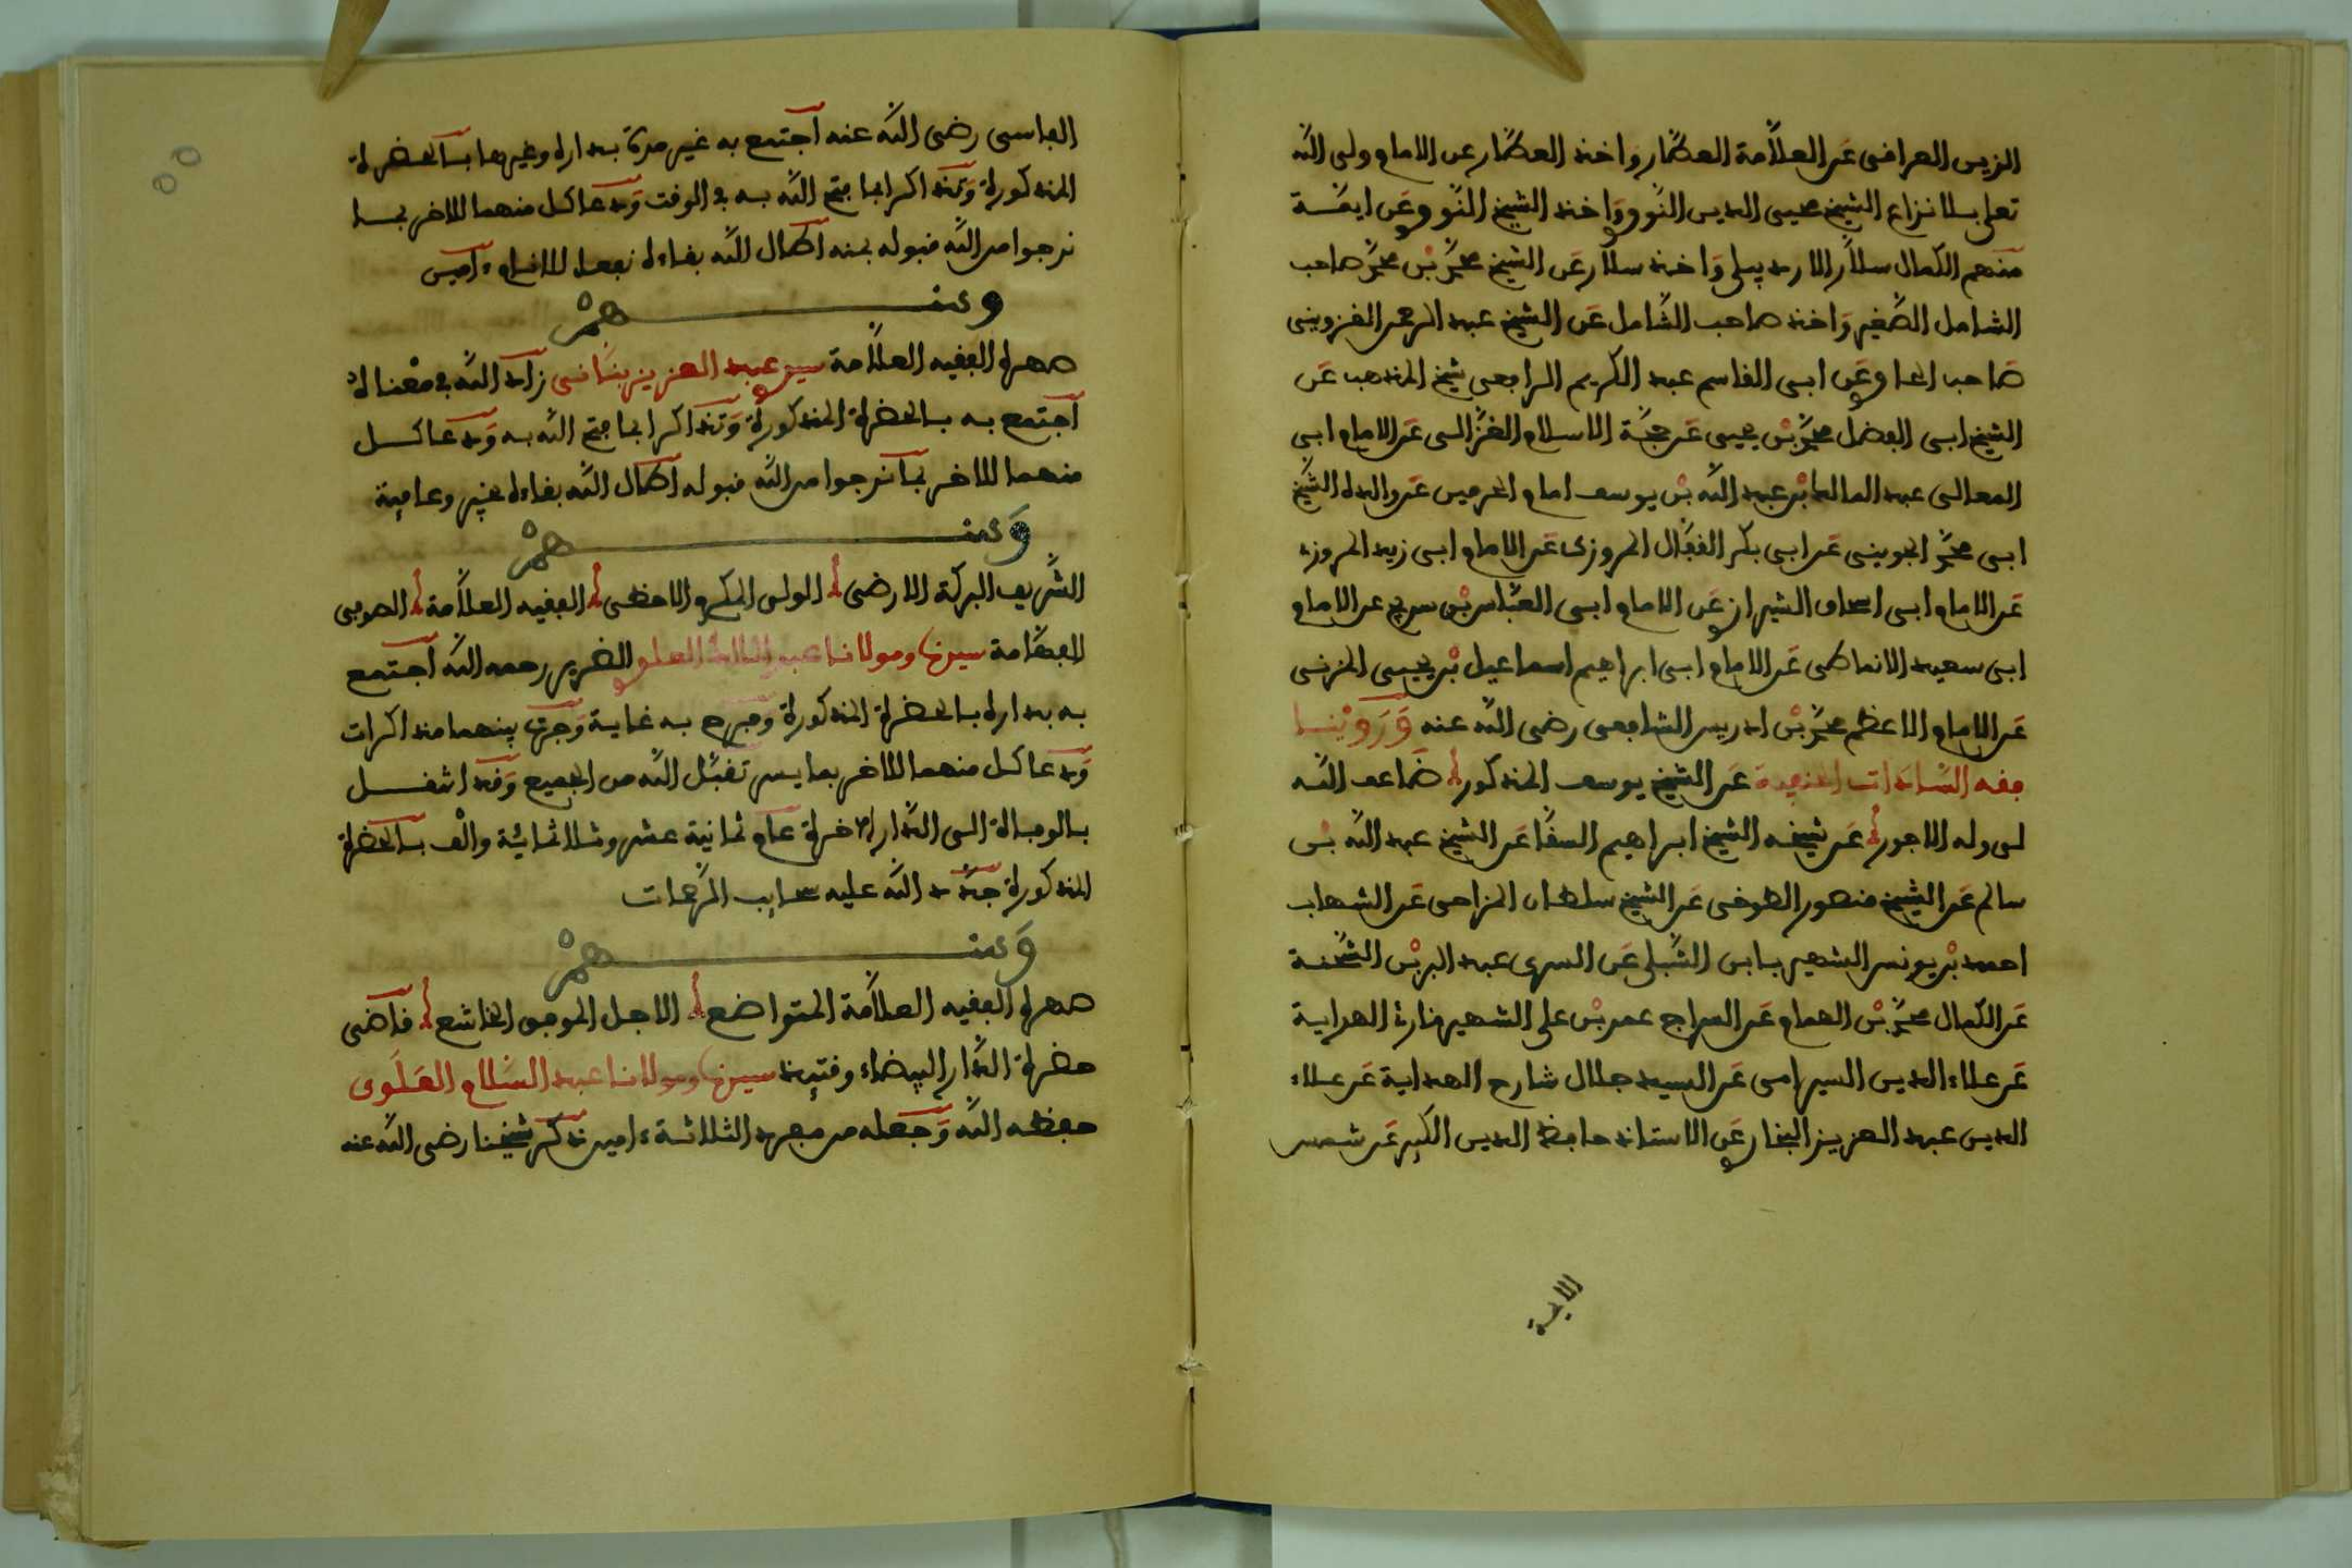 الزين العراقي عن العلامة العطار واخذ العطار عن الامام ولى الله
تعلى بلا نزاع الشيخ محيى الدين النووي واخذ الشيخ النووي عن ايمة
منهم الكمال سلار الاردبيلى واخذ سلار عن الشيخ محمد بن محمد صاحب
الشامل الصغير واخذ صاحب الشامل عن الشيخ عبد الرحمن القزوينى
صاحب الحاوي عن ابى القاسم عبد الكريم الرافعى شيخ المذهب عن
الشيخ ابى الفضل محمد بن يحيى عن حجة الاسلام الغزالى عن الامام ابى
المعالى عبد المالك بن عبد الله بن يوسف امام الحرمين عن والده الشيخ
ابى محمد الجوينى عن ابى بكر القفال المروزى عن الامام ابى زيد المروزي
عن الامام ابى اسحاق الشيرازي عن الامام ابى العباس بن سريج عن الامام
ابى سعيد الانماطى عن الامام ابى ابراهيم اسماعيل بن يحيى المزنى
عن الامام الاعظم محمد بن ادريس الشافعى رضى الله عنه وروينا
فقه السادات الحنفية عن الشيخ يوسف المذكور ضاعف الله
لى وله الاجور عن شيخه الشيخ ابراهيم السقا عن الشيخ عبد الله بن
سالم عن الشيخ منصور الطوخى عن الشيخ سلطان المزاحى عن الشهاب
احمد بن يونس الشهير بابن الشبلى عن السرى عبد البر بن الشحنة
عن الكمال محمد بن الهمام عن السراج عمر بن على الشهير بقارئ الهداية
عن علاء الدين السيرامى عن السيد جلال شارح الهداية عن علاء
الدين عبد العزيز البخاري عن الاستاذ حافظ الدين الكبير عن شمس
الايمة
الفاسى رضى الله عنه اجتمع به غير مرة بداره وغيرها بالحضرة
المذكورة وتذاكرا بما فتح الله به في الوقت ودعا كل منهما للاخر بما
نرجوا من الله قبوله بمنه اطال الله بقاءه نفعا للانام ءامين
ومنهم
صهره الفقيه العلامة سيدي عبد العزيز بنانى زاد الله في معناه
اجتمع به بالحضرة المذكورة وتذاكرا بما فتح الله به ودعا كل
منهما للاخر بما نرجوا من الله قبوله اطال الله بقاءه بخير وعافية
ومنهم
الشريف البركة الارضى الولى المكرم الاحظى الفقيه العلامة الصوفى
الفهامة سيدنا ومولانا عبد المالك العلوي الضرير رحمه الله اجتمع
به بداره بالحضرة المذكورة وفرح به غاية وجرت بينهما مذاكرات
ودعا كل منهما للاخر بما يسر تقبل الله من الجميع وقد انتقل
بالوفاة الى الدار الاخرة عام ثمانية عشر وثلاثمائة والف بالحضرة
المذكورة جدد الله عليه سحايب الرحمات
ومنهم
صهره الفقيه العلامة المتواضع الاجل الموفق الخاشع قاضى
حضرة الدار البيضاء وقتيذ سيدنا ومولانا عبد السلام العلوى
حفظه الله وجعله من الثلاثة ءامين تذكر شيخنا رضى الله عنه